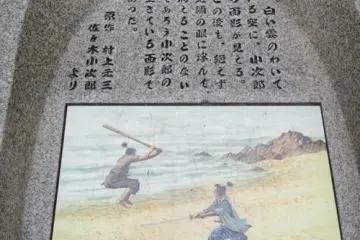 白い雲のわいて
る空に、小次郎
の面影が見える。
この後も、絶えず
武蔵の眼に浮んで、
消えることのない
であろう小次郎の
生きている面影で
あった。
原作 村上元三
佐々木小次郎
より